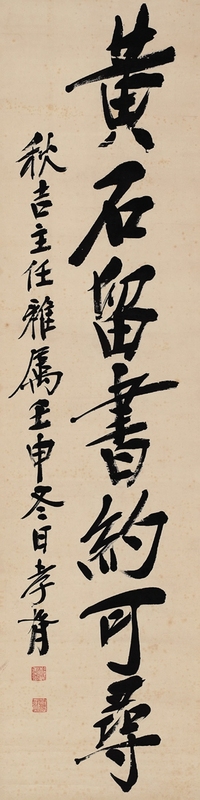 黃石留書約可尋
秋吉主任雅屬壬申冬日孝胥